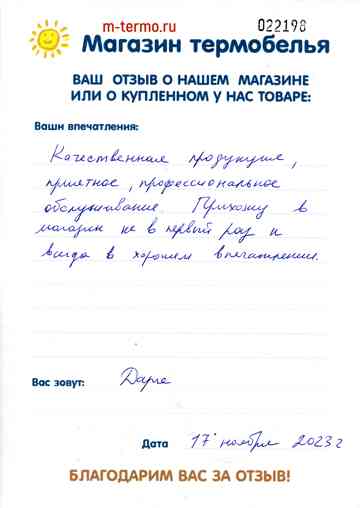 m-termo.ru
022198
Магазин термобелья
ВАШ ОТЗЫВ О НАШЕМ МАГАЗИНЕ
ИЛИ О КУПЛЕННОМ У НАС ТОВАРЕ:
Ваши впечатления:
Качественная продукция,
приятное, профессиональное
обслуживание. Прихожу в
магазин не в первый раз и
всегда в хорошем впечатлении.
Вас зовут: Дарья
Дата 17 ноября 2023 г
БЛАГОДАРИМ ВАС ЗА ОТЗЫВ!